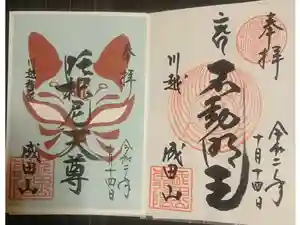 奉拝
不動明王
川越
成田山
令和二年
十月十四日
奉拝
吒枳尼天尊
川越
成田山
令和二年
十月十四日